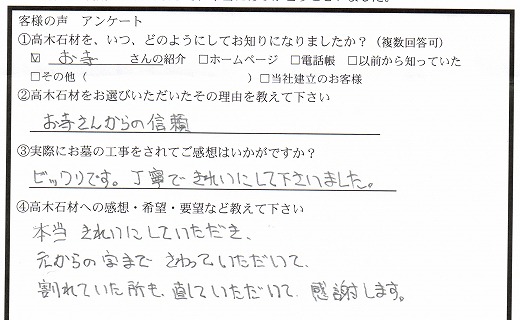 客様の声　アンケート
①高木石材を、いつ、どのようにしてお知りになりましたか？（複数回答可）
☑ お寺 さんの紹介 □ホームページ □電話帳 □以前から知っていた
□その他（ ）□当社建立のお客様
②高木石材をお選びいただいたその理由を教えて下さい
お寺さんからの信頼
③実際にお墓の工事をされてご感想はいかがですか？
ビックリです。丁寧できれいにして下さいました。
④高木石材への感想・希望・要望など教えて下さい
本当 きれいにしていただき、
元からの字まで さわっていただいて、
割れていた所も、直していただいて 感謝します。